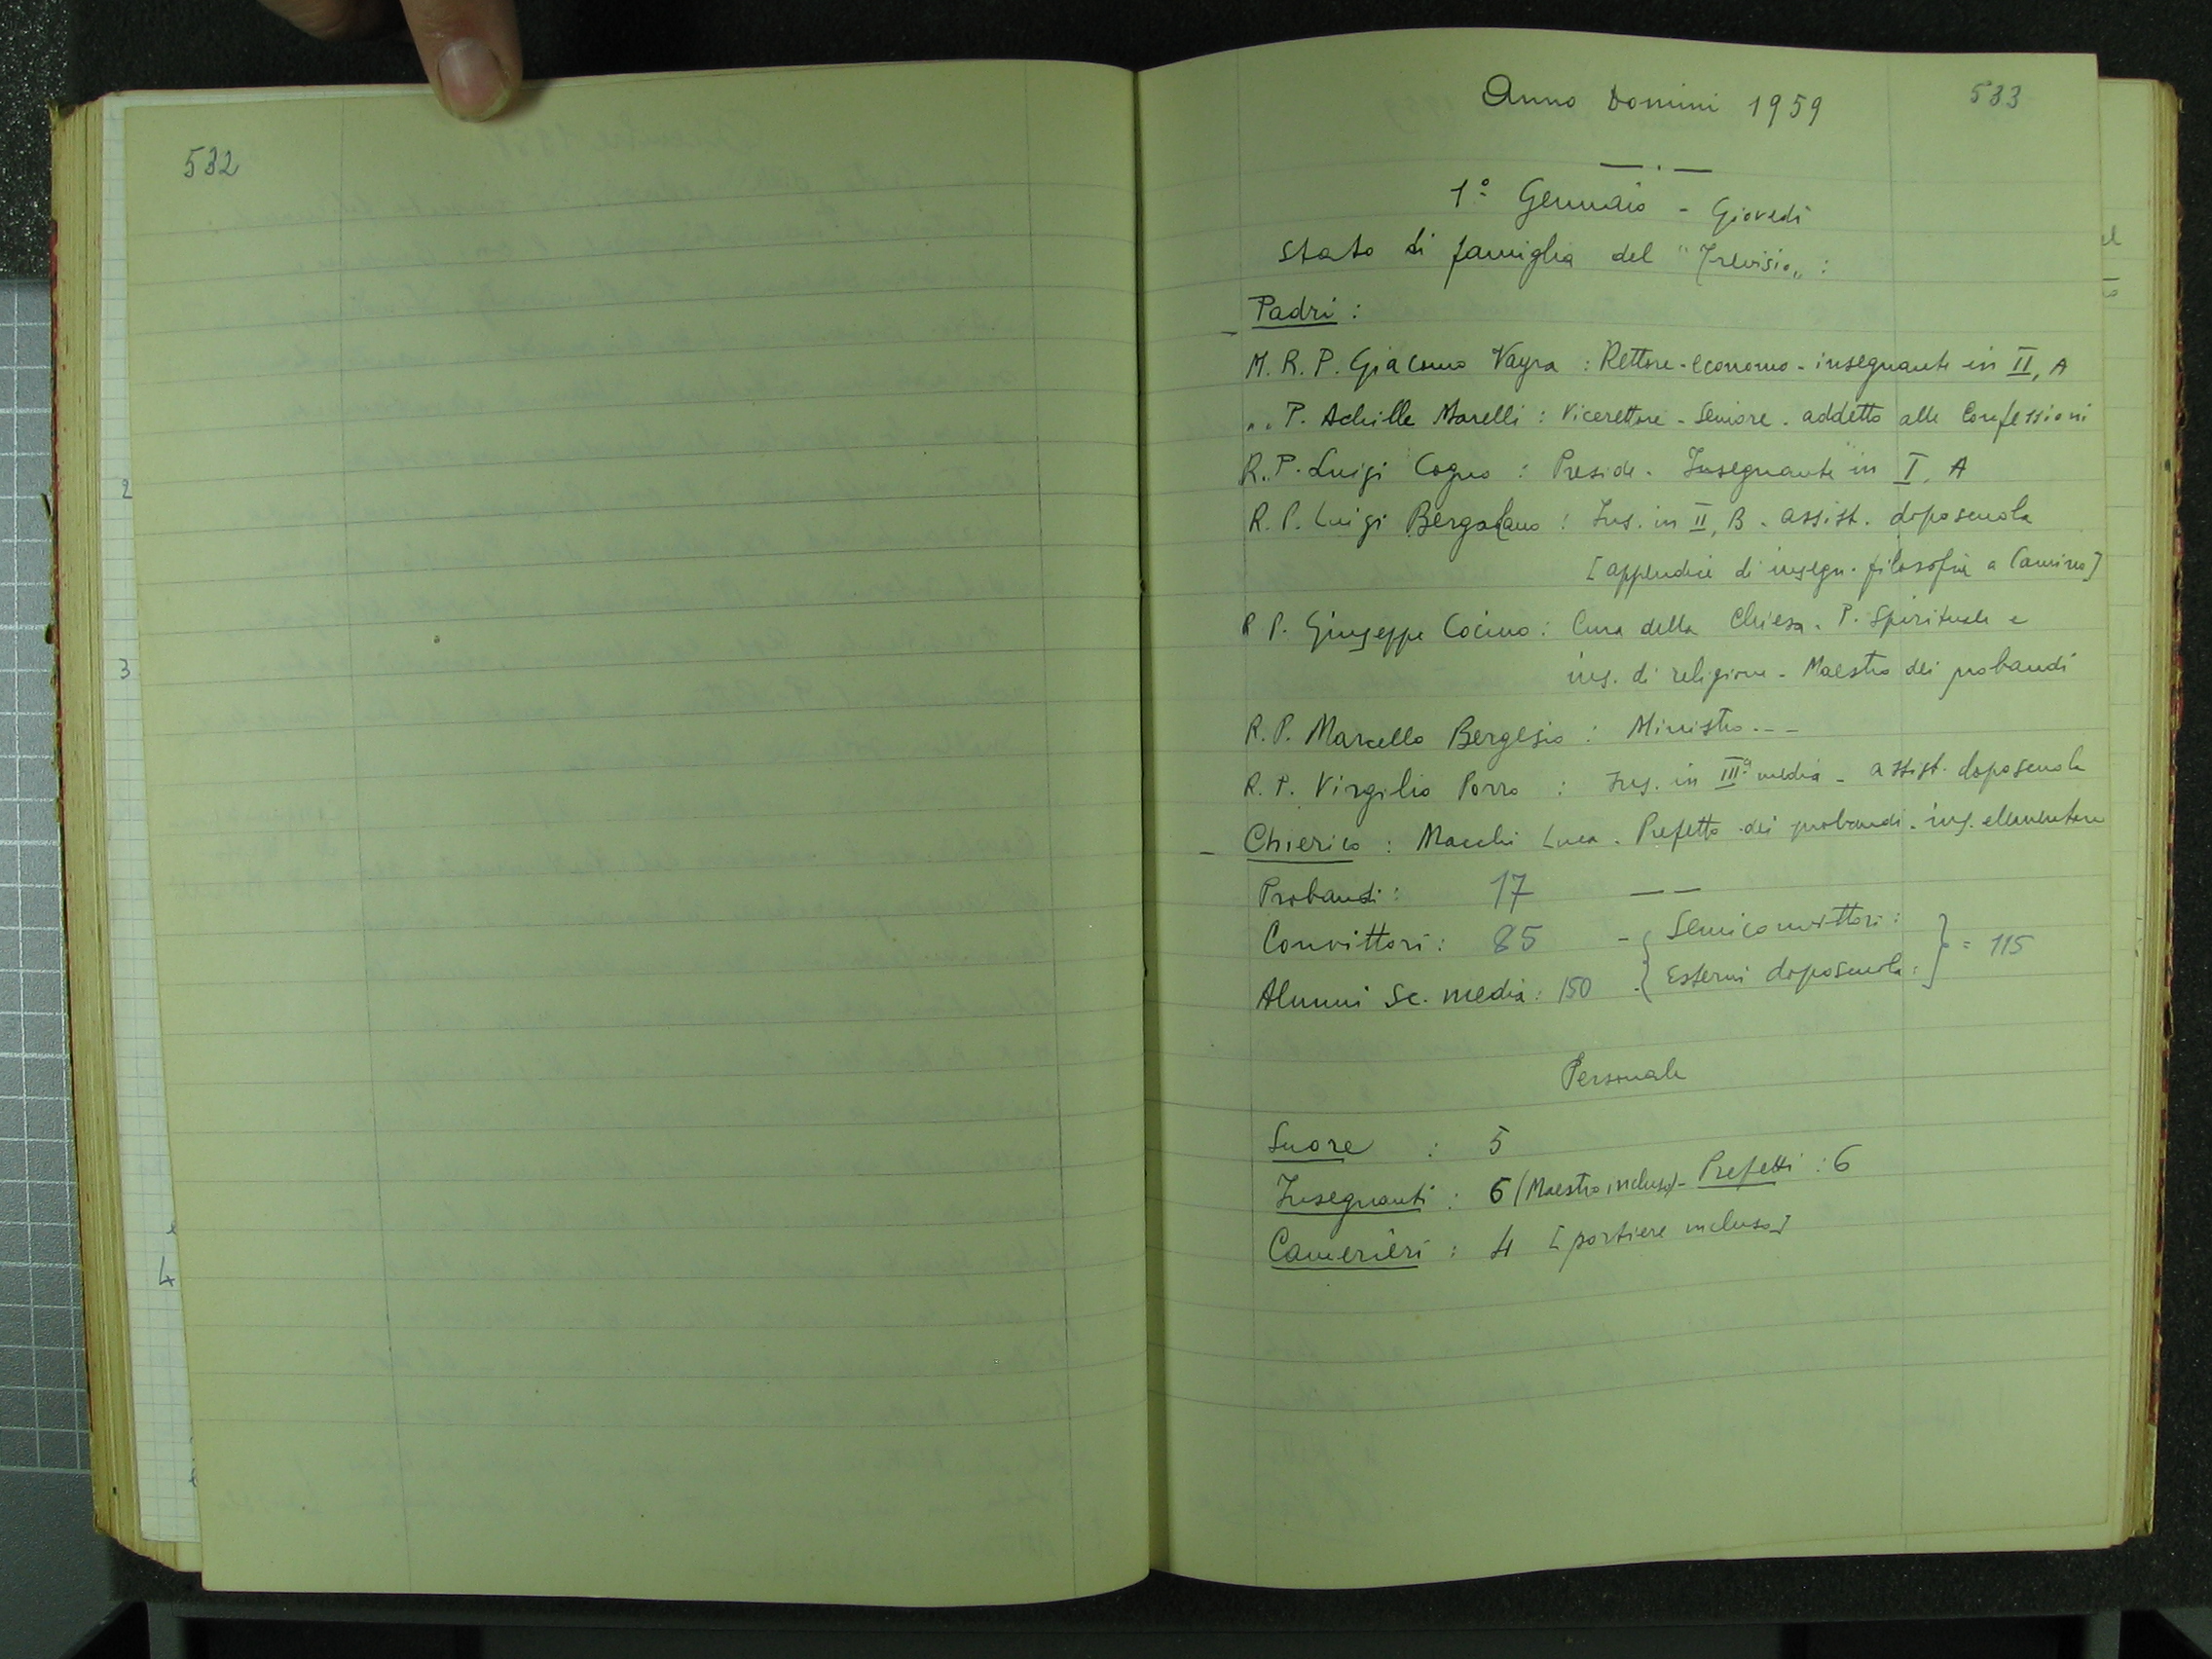 532
2
3
4
533
Anno Domini 1959
1º Gennaio - Giovedì
Stato di famiglia del "Trevisio„ :
- Padri :
M. R. P. Giacomo Vayra : Rettore - economo - insegnante in II, A
„ „ P. Achille Marelli : Vicerettore - Seniore - addetto alle Confessioni
R. P. Luigi Cogno : Preside - Insegnante in I, A
R. P. Luigi Bergadano : Ins. in II, B - assist. doposcuola
[appendice di insegn. filosofia a Camino]
R P. Giuseppe Cocino : Cura della Chiesa - P. Spirituale e
ins. di religione - Maestro dei probandi
R. P. Marcello Bergesio : Ministro - - -
R. P. Virgilio Porro : Ins. in IIIª media - assist. doposcuola
- Chierico : Macchi Luca - Prefetto dei probandi - ins. elementare
Probandi : 17 — —
Convittori : 85 - { Semiconvittori :
Alunni Sc. media : 150 - { Esterni doposcuola : } = 115
Personale
Suore : 5
Insegnanti : 6 (Maestro incluso) - Prefetti : 6
Camerieri : 4 [portiere incluso]